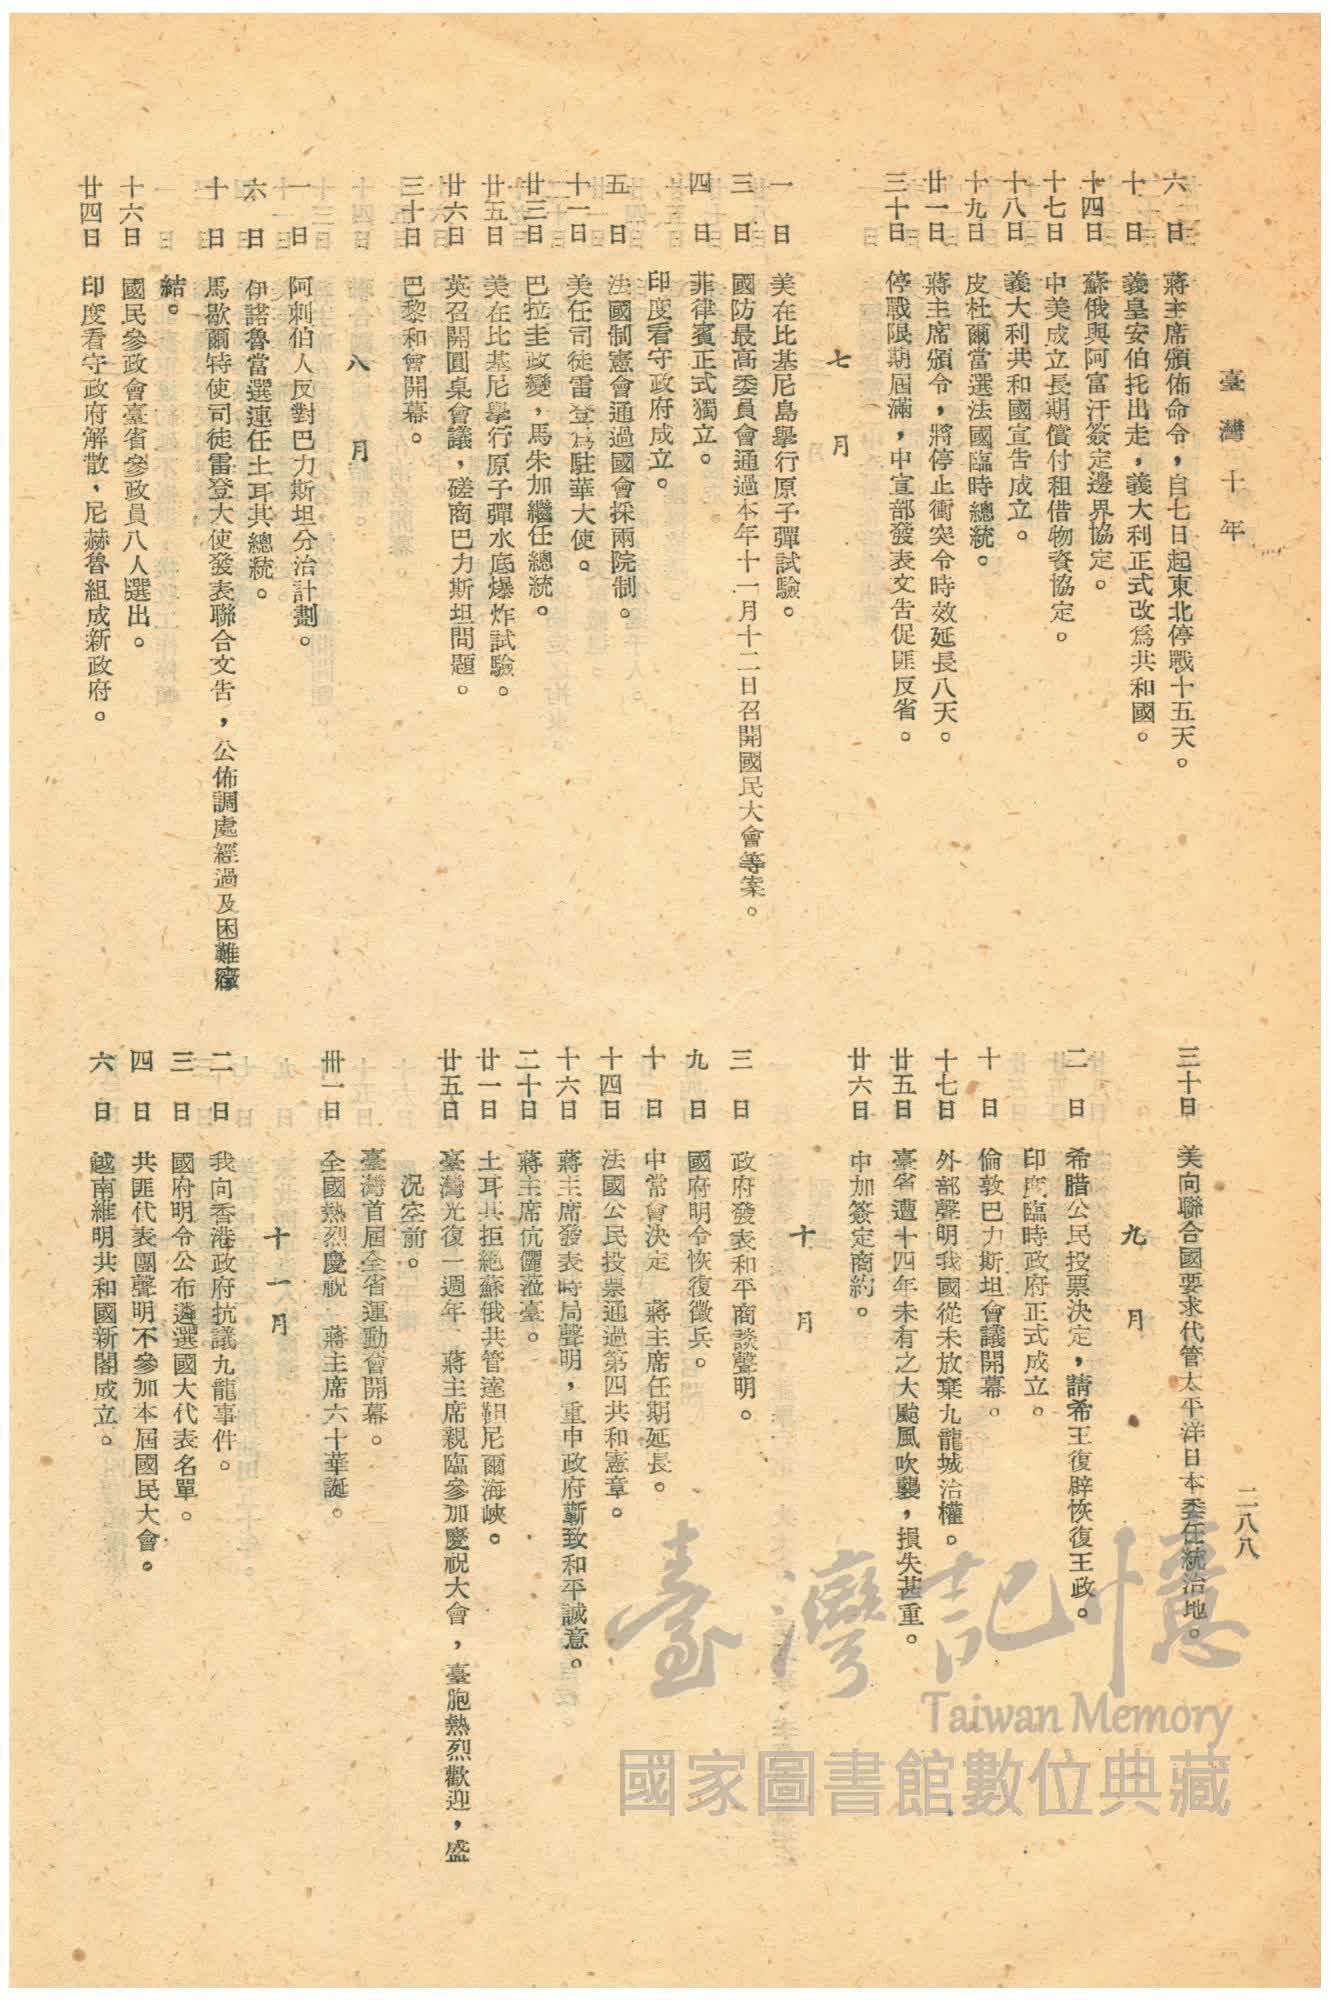 臺灣十年
二八八
六日 蔣主席頒佈命令，自七日起東北停戰十五天。
十日 義皇安伯托出走，義大利正式改爲共和國。
十四日 蘇俄與阿富汗簽定邊界協定。
十七日 中美成立長期償付租借物資協定。
十八日 義大利共和國宣告成立。
十九日 皮杜爾當選法國臨時總統。
廿一日 蔣主席頒令，將停止衝突令時效延長八天。
三十日 停戰限期屆滿，中宣部發表文告促匪反省。
七月
一日 美在比基尼島舉行原子彈試驗。
三日 國防最高委員會通過本年十一月十二日召開國民大會等案。
四日 菲律賓正式獨立。
印度看守政府成立。
五日 法國制憲會通過國會採兩院制。
十一日 美任司徒雷登爲駐華大使。
廿三日 巴拉圭政變，馬朱加繼任總統。
廿五日 美在比基尼舉行原子彈水底爆炸試驗。
廿六日 英召開圓桌會議，磋商巴力斯坦問題。
三十日 巴黎和會開幕。
八月
一日 阿刺伯人反對巴力斯坦分治計劃。
六日 伊諾魯當選連任土耳其總統。
十日 馬歇爾特使司徒雷登大使發表聯合文告，公佈調處經過及困難癥
結。
十六日 國民參政會臺省參政員八人選出。
廿四日 印度看守政府解散，尼赫魯組成新政府。
三十日 美向聯合國要求代管太平洋日本委任統治地。
九月
二日 希腊公民投票決定，請希王復辟恢復王政。
印度臨時政府正式成立。
十日 倫敦巴力斯坦會議開幕。
十七日 外部聲明我國從未放棄九龍城治權。
廿五日 臺省遭十四年未有之大颱風吹襲，損失甚重。
廿六日 中加簽定商約。
十月
三日 政府發表和平商談聲明。
九日 國府明令恢復徵兵。
十日 中常會決定 蔣主席任期延長。
十四日 法國公民投票通過第四共和憲章。
十六日 蔣主席發表時局聲明，重申政府蘄致和平誠意。
二十日 蔣主席伉儷蒞臺。
廿一日 土耳其拒絕蘇俄共管達靼尼爾海峽。
廿五日 臺灣光復一週年 蔣主席親臨參加慶祝大會，臺胞熱烈歡迎，盛
況空前。
臺灣首屆全省運動會開幕。
卅一日 全國熱烈慶祝 蔣主席六十華誕。
十一月
二日 我向香港政府抗議九龍事件。
三日 國府明令公布遴選國大代表名單。
四日 共匪代表團聲明不參加本屆國民大會。
六日 越南維明共和國新閣成立。
臺灣記憶
Taiwan Memory
國家圖書館數位典藏